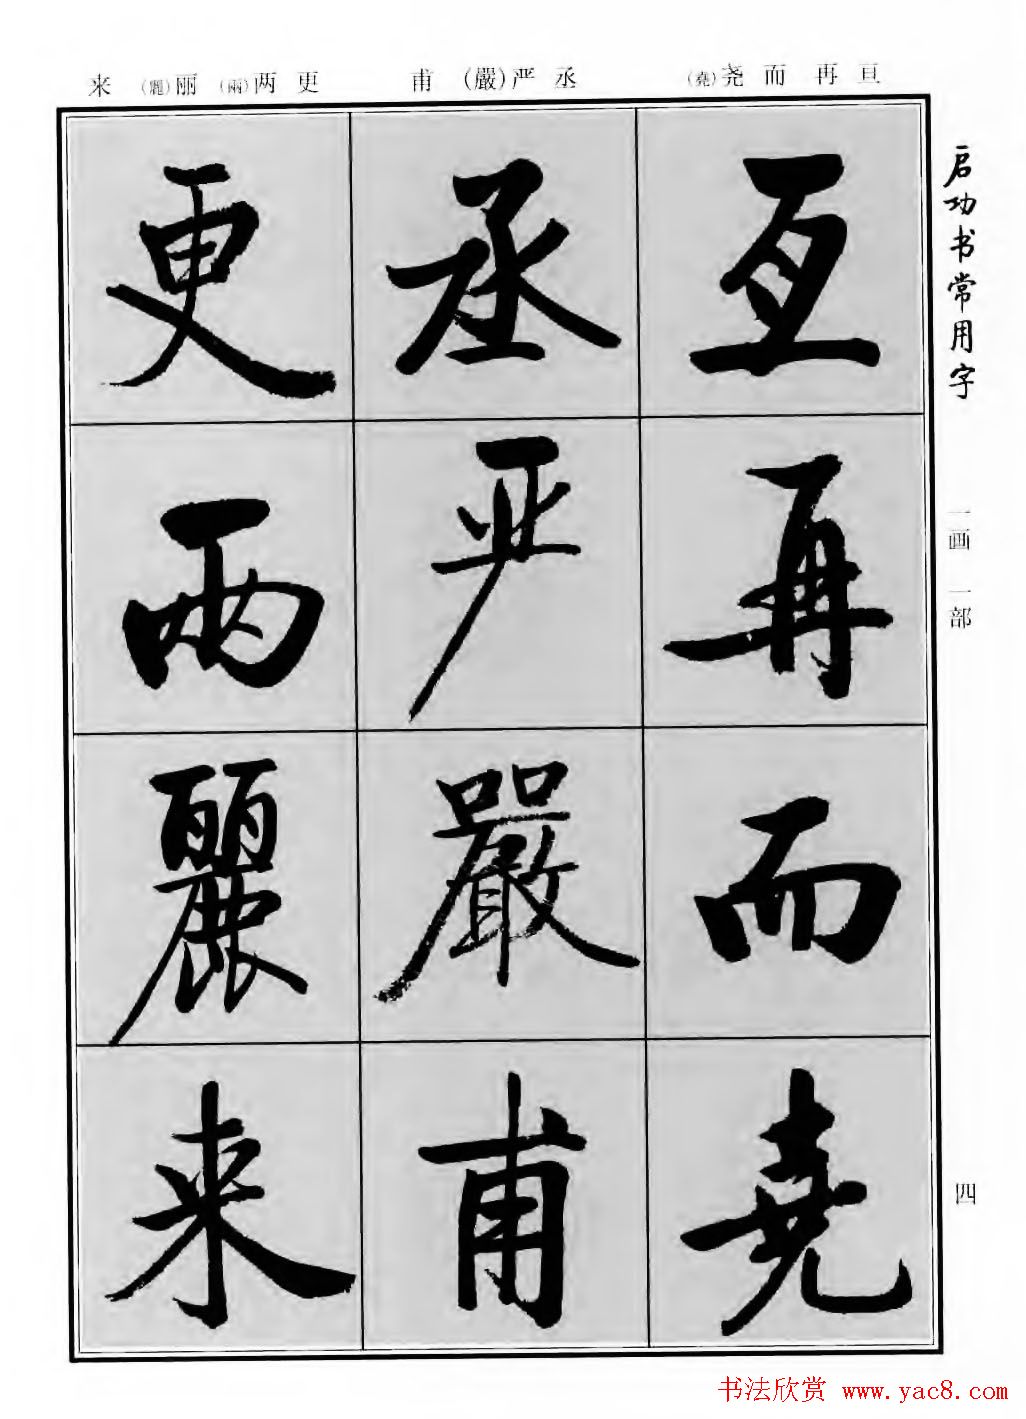 亘 再 而 尧(堯)
丞 严(嚴) 甫
更 两(兩) 丽(麗) 来
启功书常用字
一画 一部
四
亘
再
而
堯
丞
严
嚴
甫
更
兩
麗
来
书法欣赏 www.yac8.com